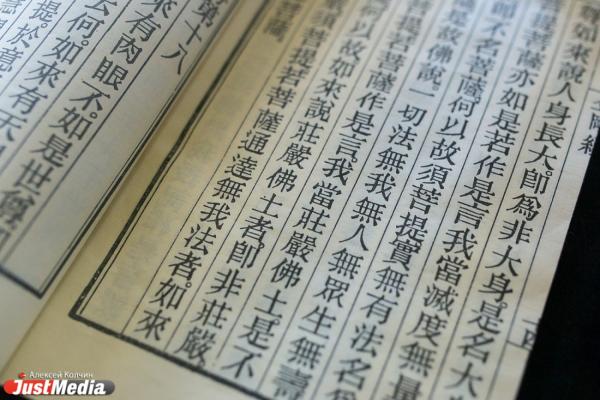 剛經
如來說人身長大。卽爲非大身是名大
菩薩亦如是若作是言我當滅度無量
卽不名菩薩何以故須菩提實無有法名爲
是故佛說。一切法無我無人無眾生無壽
菩提若菩薩作是言。我當莊嚴佛土是不
何以故如來說莊嚴佛土者。卽非莊嚴
須菩提若菩薩通達無我法者。如來
薩。
第十八
來有肉眼不。如是世尊
云何。如來有天
提。於意
Алексей Колчин
JustMedia